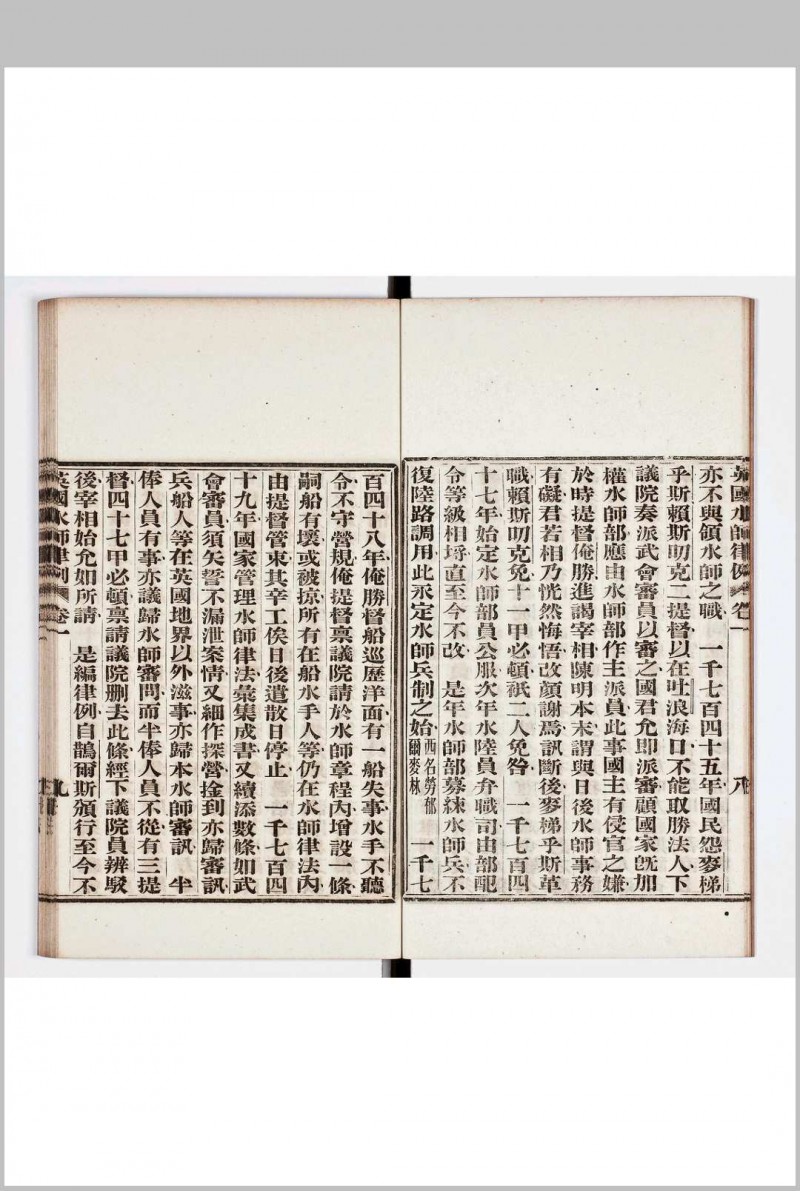 英國水師律例 卷一 八
亦不與領水師之職 一千七百四十五年國民怨麥梯
乎斯賴斯明克二提督以在吐浪海口不能取勝法人下
議院奏派武會審員以審之國君允即派審顧國家旣加
權水師部應由水師部作主派員此事國主有侵官之嫌
於時提督俺勝進謁宰相陳明本末謂與日後水師事務
有礙君若相乃恍然悔悟改顏謝焉訊斷後麥梯乎斯革
職賴斯明克免十一甲必頓祇二人免咎 一千七百四
十七年始定水師部員公服次年水陸員弁職司由部配
令等級相埒直至今不改 是年水師部募練水師兵不
復陸路調用此永定水師兵制之始西名勞郁爾麥林 一千七
百四十八年俺勝督船巡歷洋面有一船失事水手不聽
令不守營規俺提督禀議院請於水師章程內增設一條
嗣船有壞或被掠所有在船水手人等仍在水師律法內
由提督管束其辛工俟日後遣散日停止 一千七百四
十九年國家管理水師律法彙集成書又續添數條如武
會審員須矢誓不漏泄案情又細作探營捦到亦歸審訊
兵船人等在英國地界以外滋事亦歸本水師審訊 半
俸人員有事亦議歸水師審問而半俸人員不從有三提
督四十七甲必頓禀請議院删去此條經下議院員辨駁
後宰相始允如所請 是編律例自鵲爾斯頒行至今不
英國水師律例 卷一 九